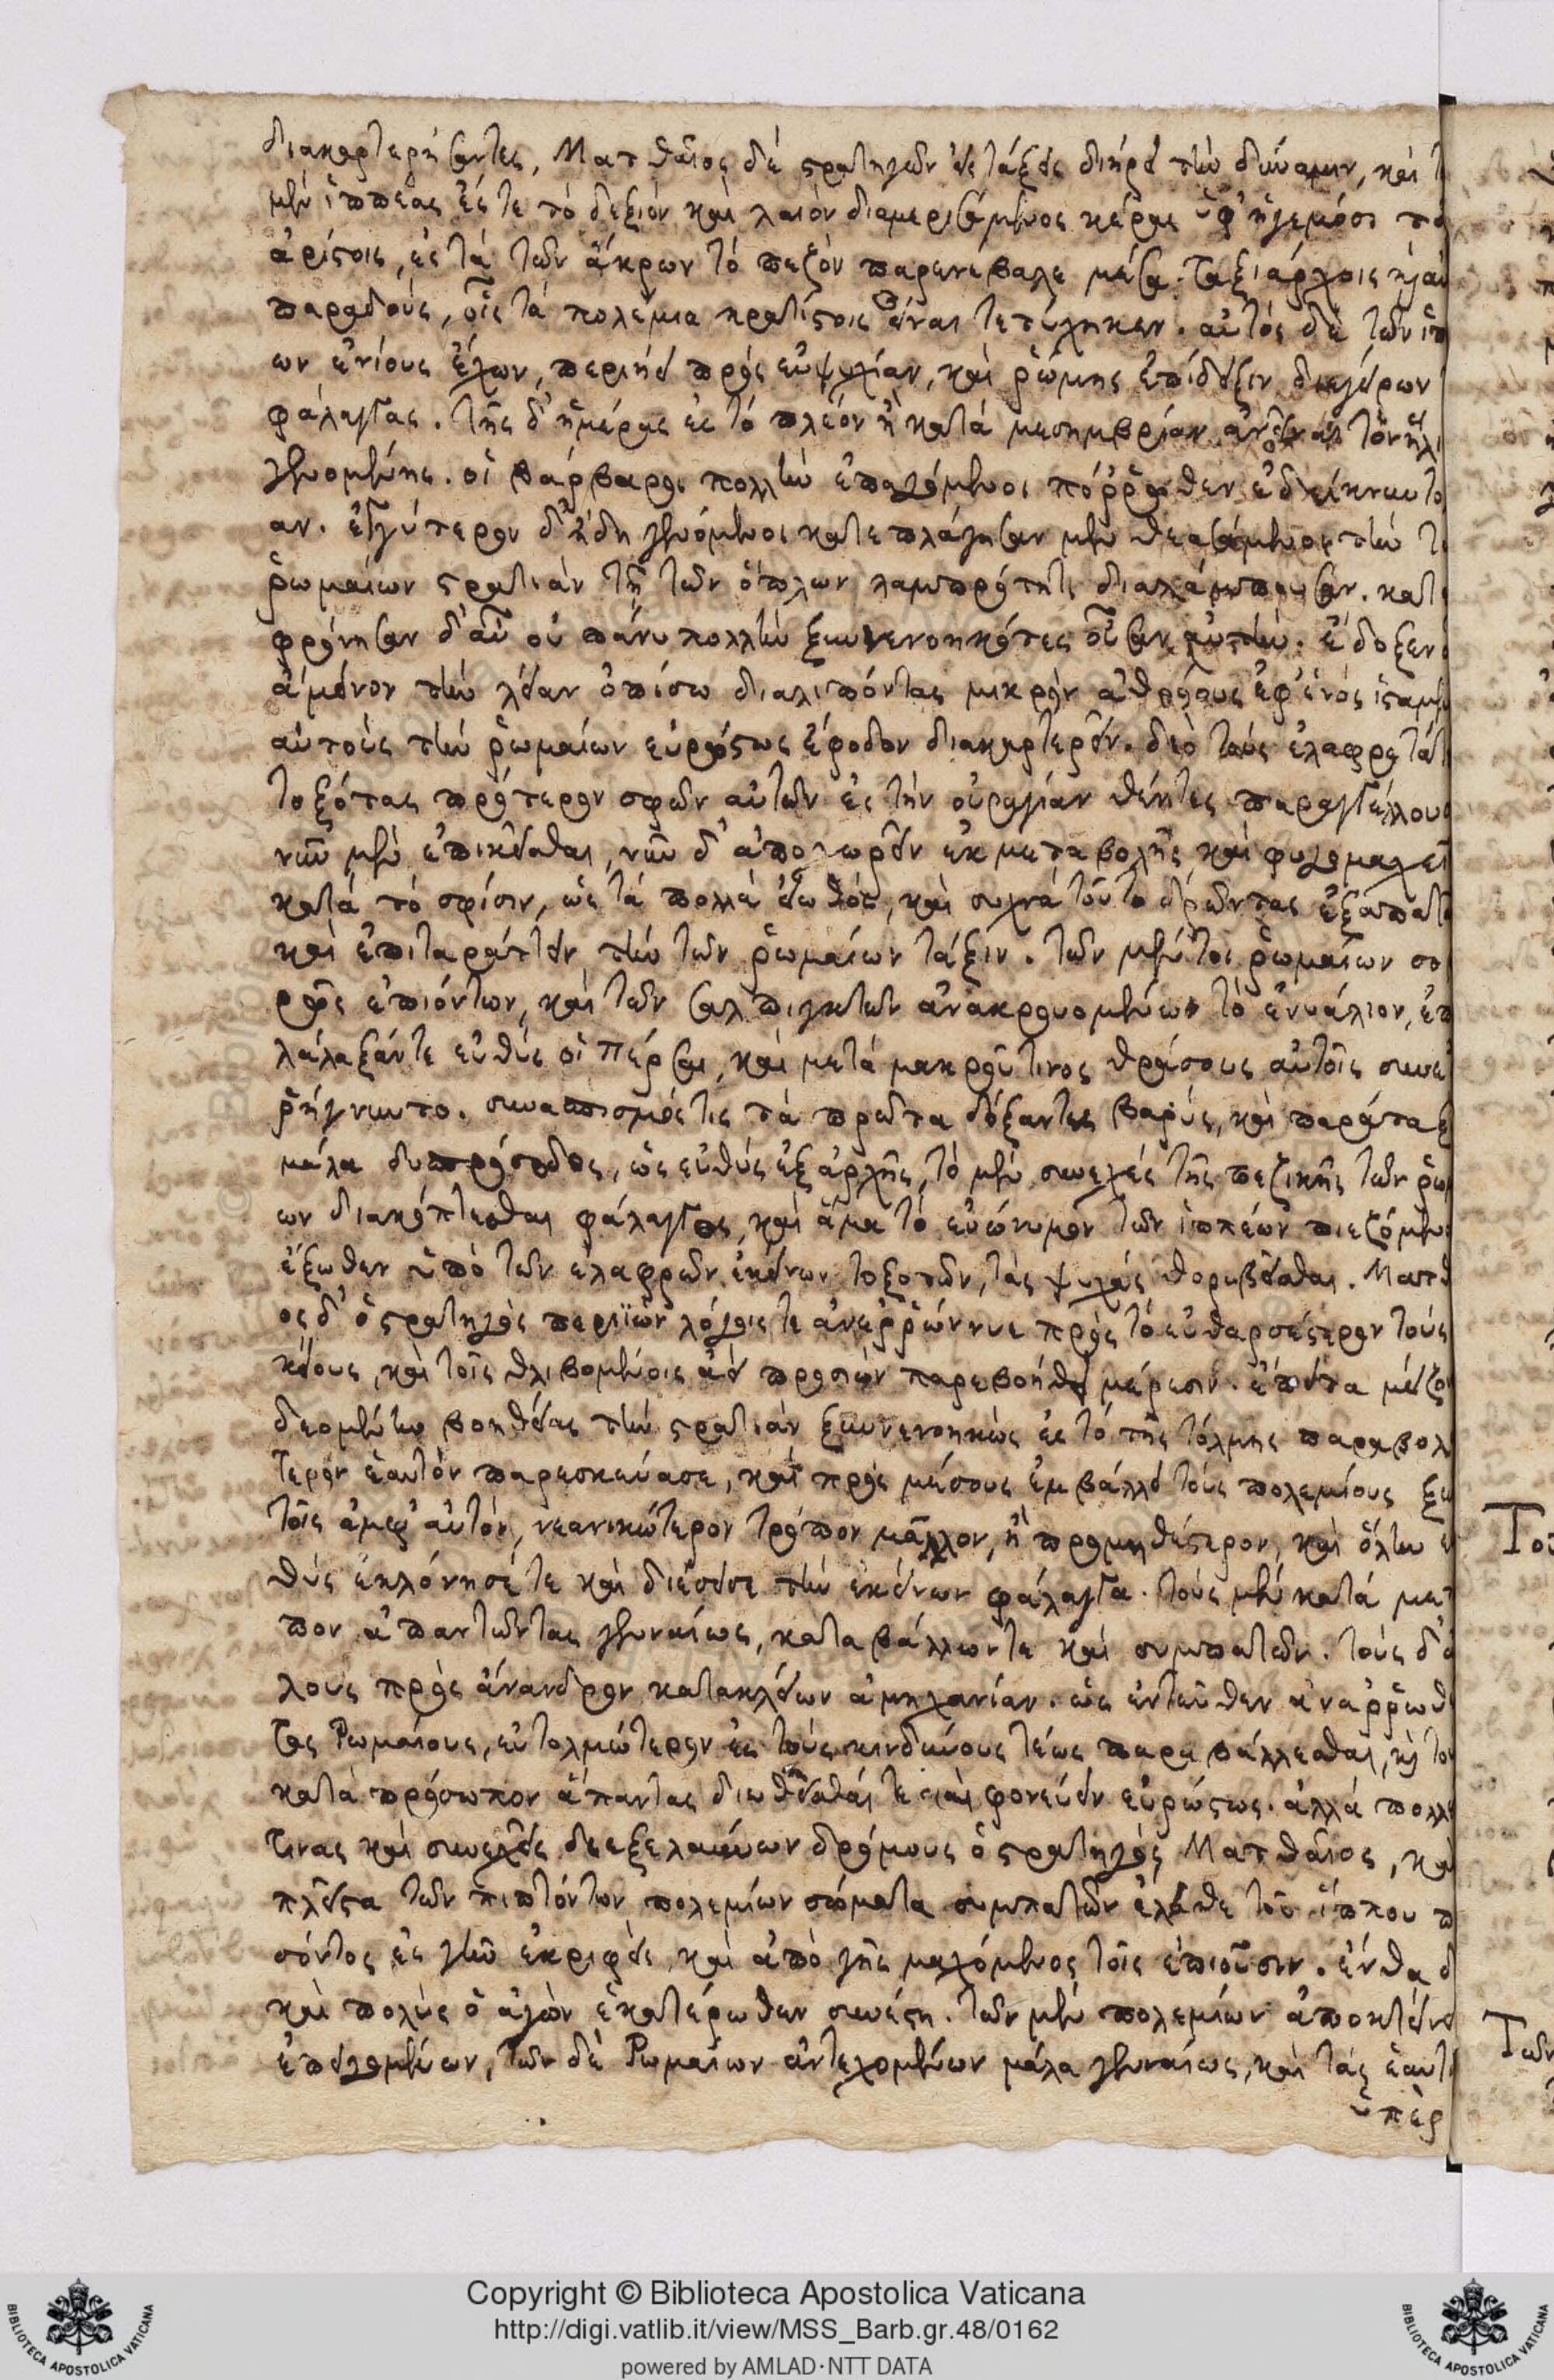 διακαρτερήσαντες, Ματθαῖος δὲ στρατηγῶν ἐς τάξεις διήρει τὴν δύναμιν, καὶ τ
μὲν ἱππέας ἔς τε τὸ δεξιὸν καὶ λαιὸν διαμερισάμενος κέρας ὑφ' ἡγεμόσι το
ἀρίστοις, ἐς τὰ τῶν ἄκρων τὸ πεζὸν παρενέβαλε μέσα. ταξιάρχοις
παραδοὺς, οἷς τὰ πολέμια κρατίστοις εἶναι τετύχηκεν. αὐτὸς δὲ τῶν ἱπ
ων ἐνίους ἔχων, περιῄει πρὸς εὐψυχίαν, καὶ ῥώμης ἐπίδειξιν διεγείρων
φάλαγγας. τῆς δ' ἡμέρας ἐς τὸ πλέον ἢ κατὰ μεσημβρίαν τὸν ἥλι
γενομένης. οἱ βάρβαροι πολλὴν ἐπαγόμενοι πόρρωθεν ἐδείκνυντο
αν. ἐγγύτερον δ' ἤδη γενόμενοι κατεπλάγησαν μὲν θεασάμενοι τὴν τ
ῥωμαίων στρατιὰν τῇ τῶν ὅπλων λαμπρότητι διαλάμπουσαν. κατ
φρόνησαν δ' αὖ οὐ πάνυ πολλὴν ξυννενοηκότες οὖσαν αὐτήν. ἔδοξεν
ἄμεινον τὴν λείαν ὀπίσω διαλιπόντας μικρὸν ἀθρόους ἐφ' ἑνὸς ἱσταμέν
αὐτοὺς τὴν ῥωμαίων εὐρώστως ἔφοδον διακαρτερεῖν. διὸ τοὺς ἐλαφροτάτ
τοξότας πρότερον σφῶν αὐτῶν ἐς τὴν οὐραγίαν θέντες παραγγέλλουσ
νῦν μὲν ἐπικεῖσθαι, νῦν δ' ἀποχωρεῖν ἐκ μεταβολῆς καὶ φυγομαχεῖ
κατὰ τὸ σφίσιν, ὡς τὰ πολλὰ εἰωθὸς, καὶ συχνὰ τοῦτο δρῶντας ἐξαπατ
καὶ ἐπιταράττειν τὴν τῶν ῥωμαίων τάξιν. τῶν μέντοι ῥωμαίων σο
ρῶς ἐπιόντων, καὶ τῶν σαλπιγκτῶν ἀνακρουομένων τὸ ἐνυάλιον, ἐπ
λάλαξάν τε εὐθὺς οἱ πέρσαι, καὶ μετὰ μακροῦ τινος θράσους αὐτοῖς συνε
ῥήγνυντο. συνασπισμός τις τὰ πρῶτα δόξαντες βαρύς, καὶ παράταξ
μάλα δυσπρόσοδος, ὡς εὐθὺς ἐξ ἀρχῆς, τὸ μὲν συνεχὲς τῆς πεζικῆς τῶν ῥω
ων διακόπτεσθαι φάλαγγος, καὶ ἅμα τὸ εὐώνυμον τῶν ἱππέων πιεζόμεν
ἔξωθεν ὑπὸ τῶν ἐλαφρῶν ἐκείνων τοξοτῶν, τὰς ψυχὰς θορυβεῖσθαι. Ματθ
ος δ' ὁ στρατηγὸς περιϊὼν λόγοις τε ἀνερρώννυε πρὸς τὸ εὐθαρσέστερον τοὺς
κείους, καὶ τοῖς θλιβομένοις ἀεὶ προσιὼν παρεβοήθει μέρεσιν. ἔπειτα μείζο
δεομένην βοηθείας τὴν στρατιὰν ξυννενοηκὼς ἐς τὸ τῆς τόλμης παραβολ
τερον ἑαυτὸν παρεσκεύασε, καὶ πρὸς μέσους ἐμβάλλει τοὺς πολεμίους ξυ
τοῖς ἀμφ' αὐτὸν, νεανικώτερον τρόπον μᾶλλον, ἢ προμηθέστερον, καὶ ὅλην ε
θὺς ἐκλόνησέ τε καὶ διέσεισε τὴν ἐκείνων φάλαγγα. τοὺς μὲν κατὰ μετ
πον ἀπαντῶντας γενναίως, καταβάλλων τε καὶ συμπατῶν. τοὺς δ' ἀ
λους πρὸς ἄνανδρον κατακλείων ἀμηχανίαν. ὡς ἐντεῦθεν ἀναρρωσθ
τας Ῥωμαίους, εὐτολμώτερον ἐς τοὺς κινδύνους τέως παραβάλλεσθαι, κỳ τοὺ
κατὰ πρόσωπον ἅπαντας διωθεῖσθαί τε καὶ φονεύειν εὐρώστως. ἀλλὰ πολλ
τινας καὶ συνεχεῖς διεξελαύνων δρόμους ὁ στρατηγὸς Ματθαῖος, καὶ
πλεῖστα τῶν πιπτόντων πολεμίων σώματα συμπατῶν ἔλαθε τοῦ ἵππου π
σόντος ἐς γῆν ἐκριφεὶς, καὶ ἀπὸ γῆς μαχόμενος τοῖς ἐπιοῦσιν. ἔνθα δ
καὶ πολὺς ὁ ἀγὼν ἑκατέρωθεν συνέστη. τῶν μὲν πολεμίων ἀποκτεῖνα
ἐπειγομένων, τῶν δὲ Ῥωμαίων ἀντεχομένων μάλα γενναίως, καὶ τὰς ἑαυτ
ὑπὲρ
Copyright © Biblioteca Apostolica Vaticana
http://digi.vatlib.it/view/MSS_Barb.gr.48/0162
powered by AMLAD·NTT DATA
BIBLIOTECA APOSTOLICA VATICANA
BIBLIOTECA APOSTOLICA VATICANA